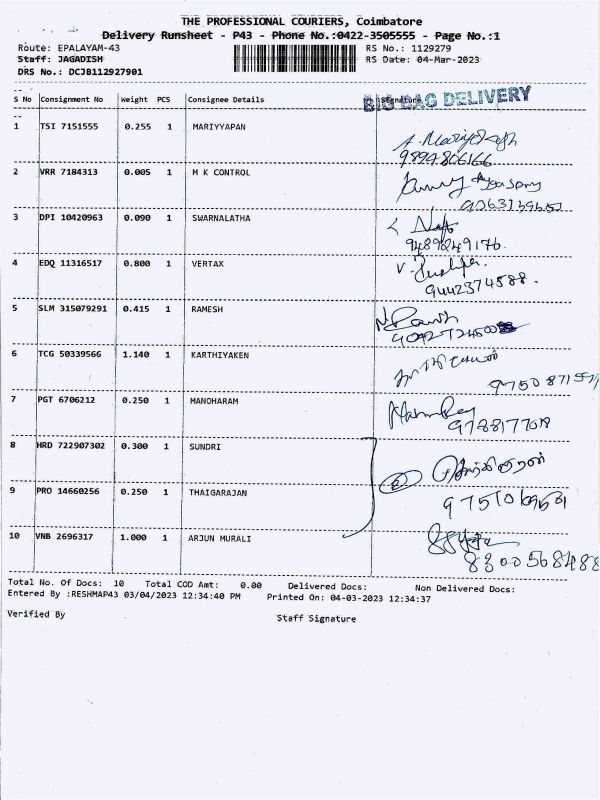 THE PROFESSIONAL COURIERS, Coimbatore
Delivery Runsheet - P43 - Phone No.:0422-3505555 - Page No.:1
Route: EPALAYAM-43 RS No.: 1129279
Staff: JAGADISH RS Date: 04-Mar-2023
DRS No.: DCJB112927901
BIG BAG DELIVERY
S No Consignment No Weight PCS Consignee Details Signature
1 TSI 7151555 0.255 1 MARIYYAPAN
9894806166
2 VRR 7184313 0.005 1 M K CONTROL
3 DPI 10420963 0.090 1 SWARNALATHA
9489249176.
4 EDQ 11316517 0.800 1 VERTAX
9442374588.
5 SLM 315079291 0.415 1 RAMESH
6 TCG 50339566 1.140 1 KARTHIYAKEN
7 PGT 6706212 0.250 1 MANOHARAM
8 HRD 722907302 0.300 1 SUNDRI
9 PRO 14660256 0.250 1 THAIGARAJAN
10 VNB 2696317 1.000 1 ARJUN MURALI
8300568488
Total No. Of Docs: 10 Total COD Amt: 0.00 Delivered Docs: Non Delivered Docs:
Entered By :RESHMAP43 03/04/2023 12:34:40 PM Printed On: 04-03-2023 12:34:37
Verified By Staff Signature